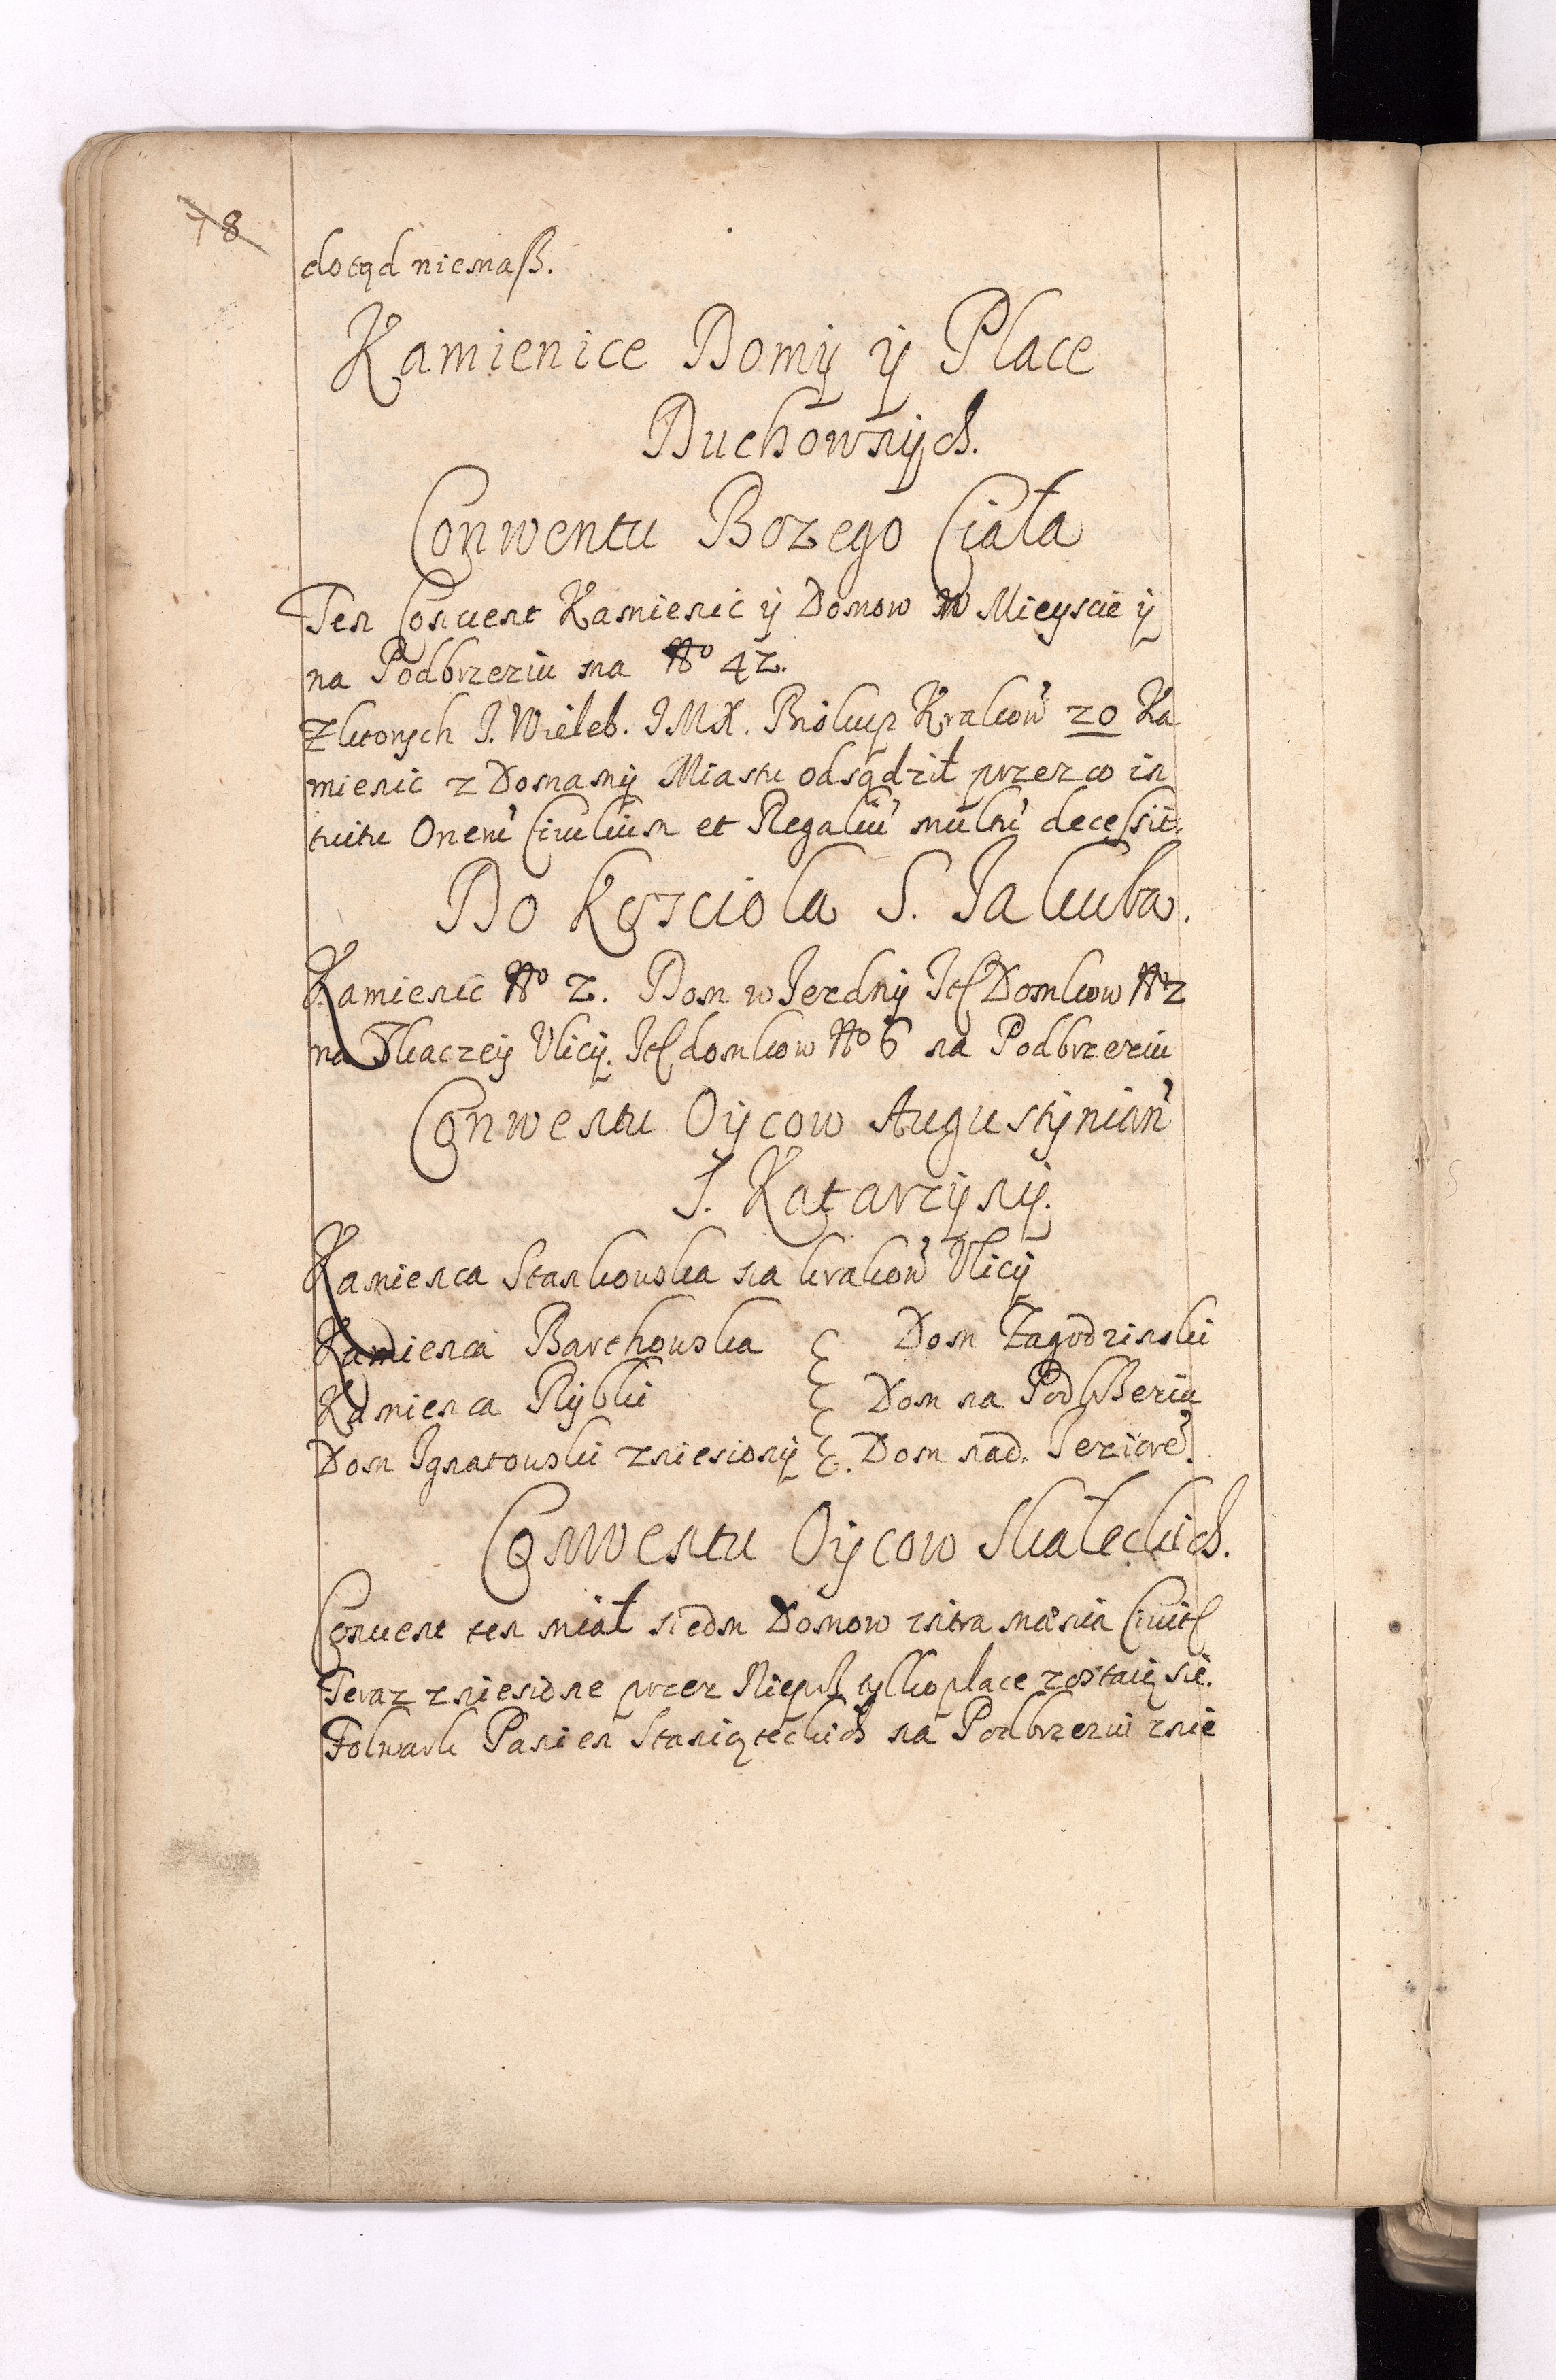 78
dotąd niemasz.
Kamienice Domy y Place
Duchownych.
Conwentu Bozego Ciała
Ten Convent Kamienic y Domow w Mieyscie y
na Podbrzeziu ma No 42.
Zktorych J. Wieleb. JMX. Biskup Krakow 20 Ka
mienic z Domamy Miastu odsądził przez co in
tuitu Onerū Civilium et Regaliū multū decessit.
Do Kosciola S. Jakuba.
Kamienic No 2. Dom w Jezdny Itỉ Domkow No 2
na Tkaczey Vlicy. Itỉ domkow No 6 na Podbrzeziu
Conwentu Oycow Augustynian
S. Katarzyny.
Kamienca Stankowska na krakow Vlicy
Kamienca Barthowska Dom Zagodzinski
Kamienca Rybki Dom na Podbrzeziu
Dom Ignatowski zniesiony Dom nad
Conwentu Oycow Skałeckich.
Convent ten miał siedm Domow intra mænia Civit
Teraz zniesione przez tylko place zostaię się.
Folwark Panien Staniąteckich na Podbrzeziu znie